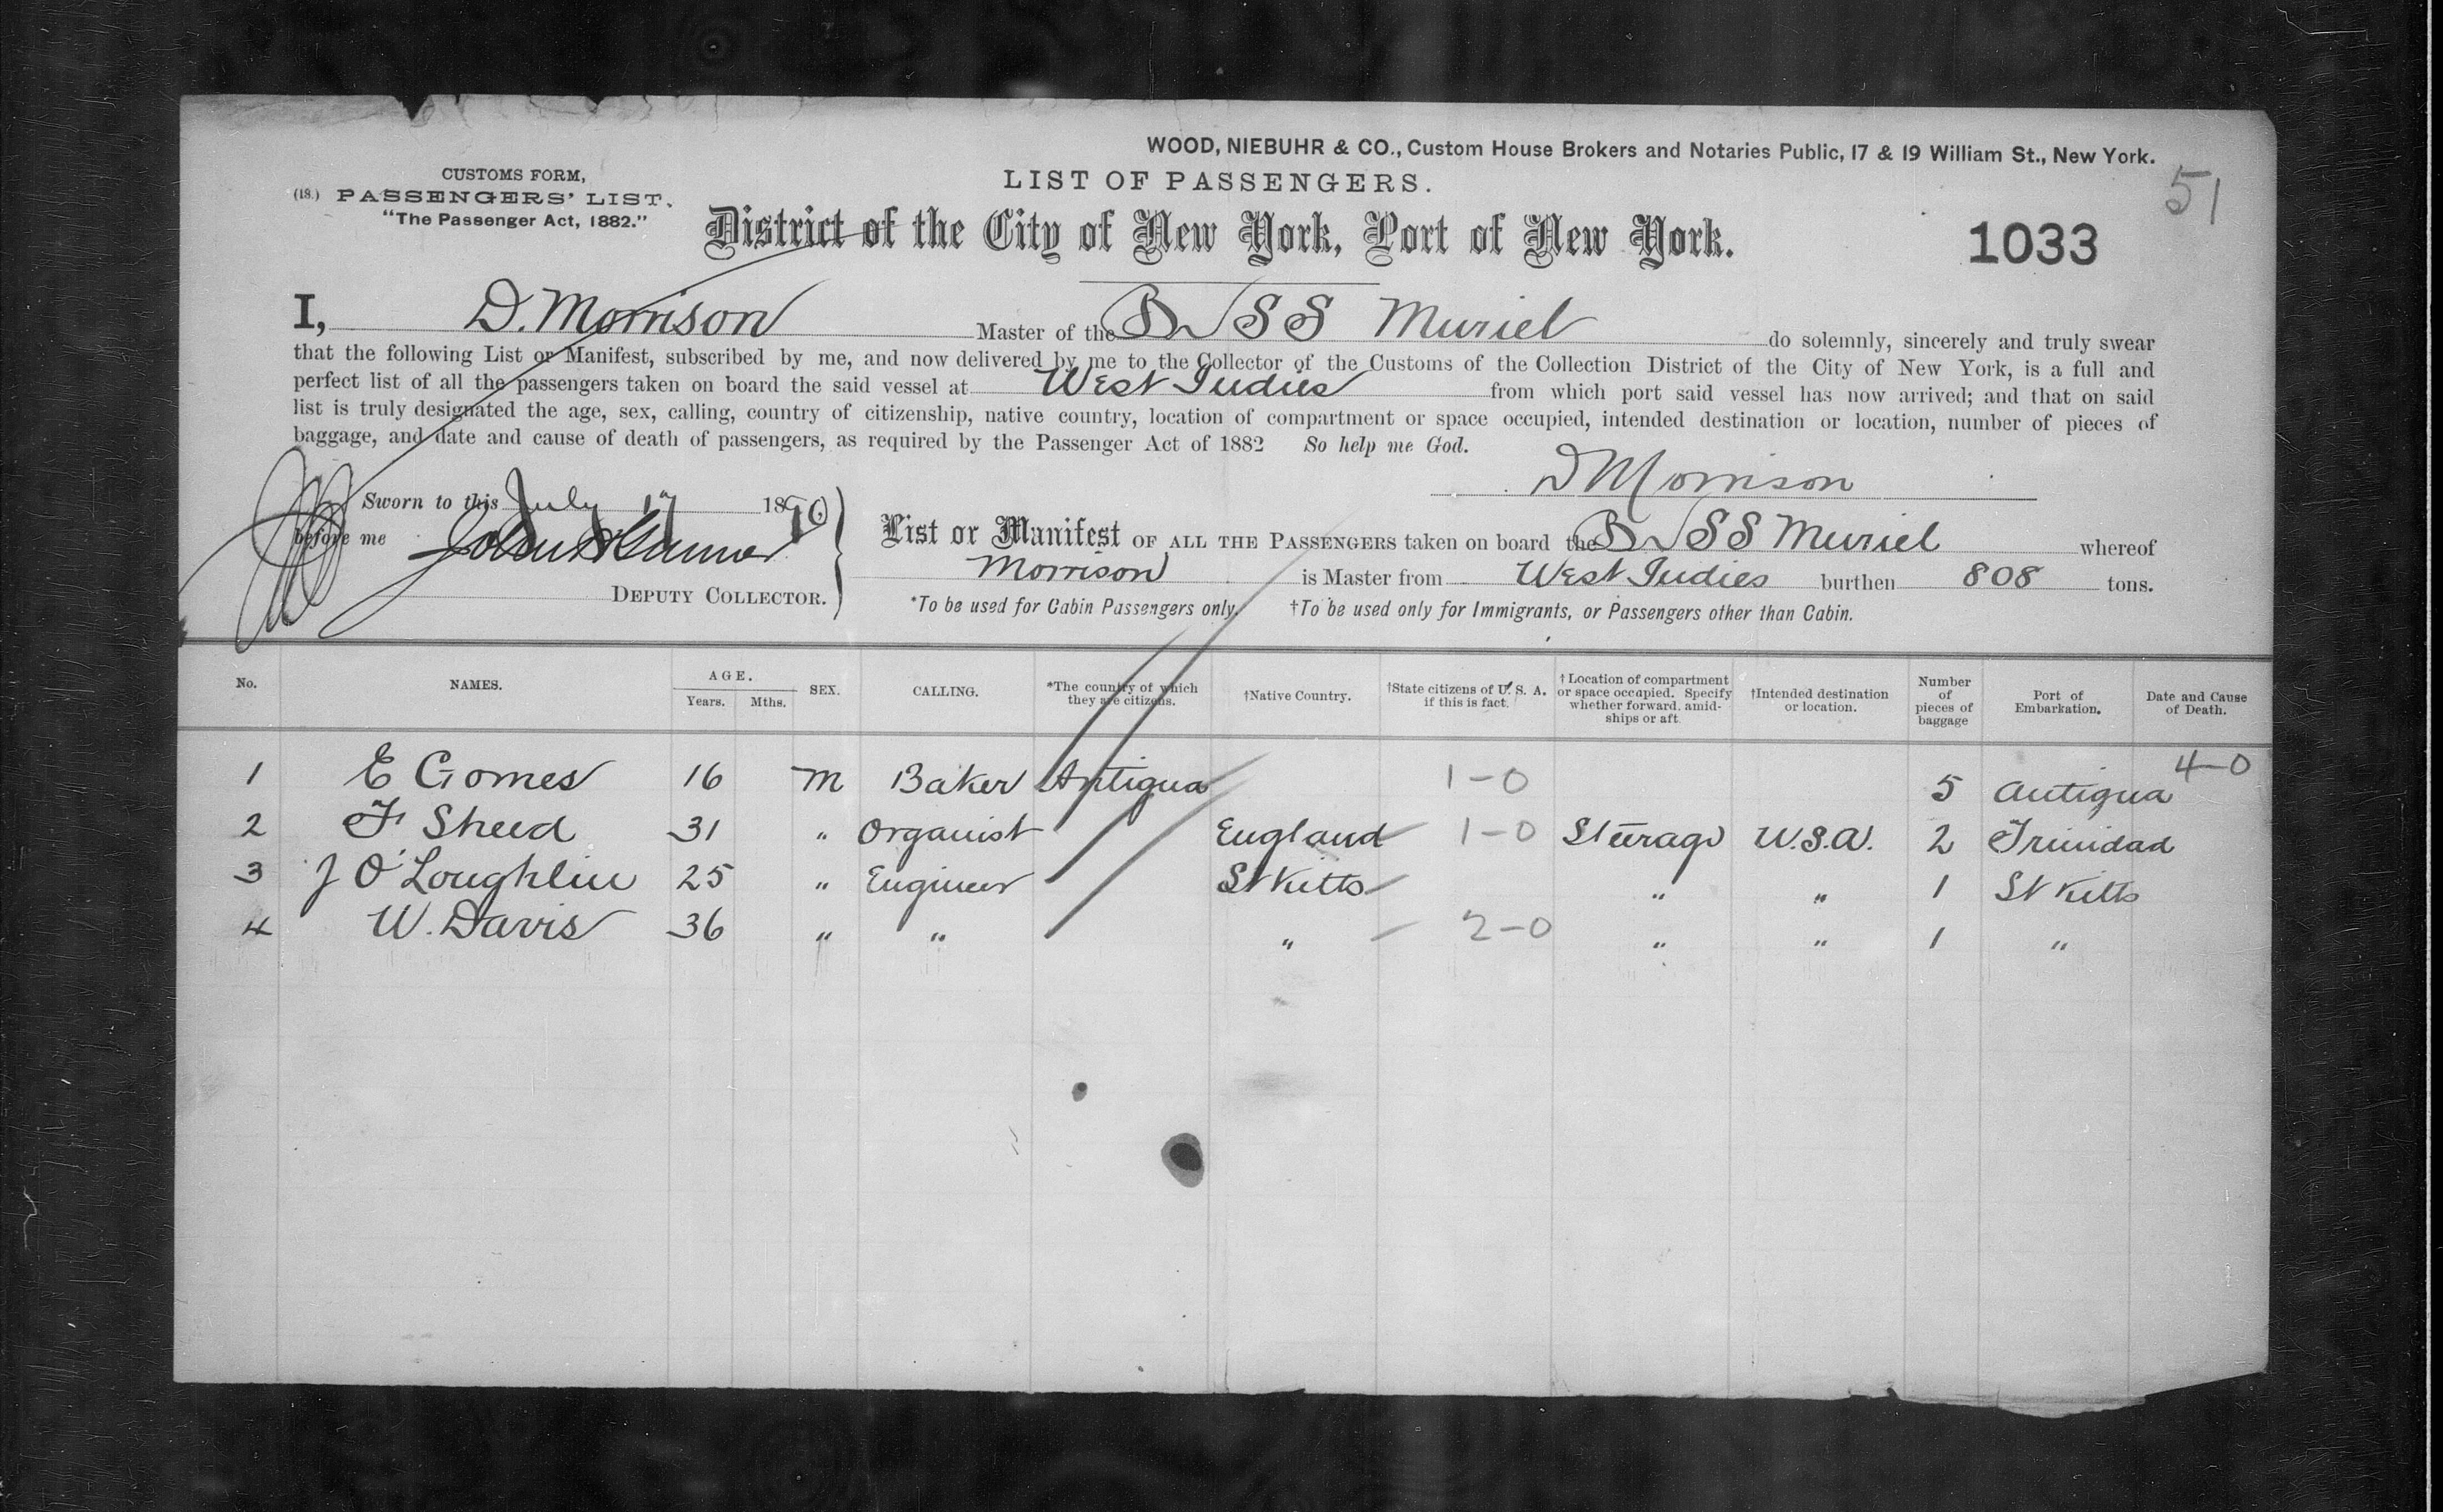 WOOD, NIEBUHR & CO., Custom House Brokers and Notaries Public, 17 & 19 William St., New York.
51
CUSTOMS FORM,
(18.) PASSENGERS' LIST.
"The Passenger Act, 1882."
LIST OF PASSENGERS.
District of the City of New York, Port of New York.
1033
I, D. Morrison Master of the Br SS Muriel do solemnly, sincerely and truly swear
that the following List or Manifest, subscribed by me, and now delivered by me to the Collector of the Customs of the Collection District of the City of New York, is a full and
perfect list of all the passengers taken on board the said vessel at West Indies from which port said vessel has now arrived; and that on said
list is truly designated the age, sex, calling, country of citizenship, native country, location of compartment or space occupied, intended destination or location, number of pieces of
baggage, and date and cause of death of passengers, as required by the Passenger Act of 1882 So help me God.
D Morrison
Sworn to this July 17 1890
before me
DEPUTY COLLECTOR.
List or Manifest OF ALL THE PASSENGERS taken on board the Br SS Muriel whereof
Morrison is Master from West Indies burthen 808 tons.
*To be used for Cabin Passengers only. †To be used only for Immigrants, or Passengers other than Cabin.
No. NAMES. AGE. Years. Mths. SEX. CALLING. *The country of which they are citizens. †Native Country. †State citizens of U. S. A. if this is fact. †Location of compartment or space occupied. Specify whether forward, amidships or aft. †Intended destination or location. Number of pieces of baggage Port of Embarkation. Date and Cause of Death.
4-0
1 E Gomes 16 M Baker Antigua 1-0 5 Antigua
2 F Sheed 31 " Organist England 1-0 Steerage U.S.A. 2 Trinidad
3 J O'Loughlin 25 " Engineer St Kitts " " 1 St Kitts
4 W. Davis 36 " " " 2-0 " " 1 "